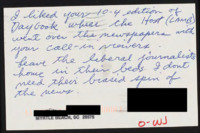 I liked your 10-4 edition of
Daybook where the Host (Candy)
went over the newspapers with
your call-in viewers.
Leave the liberal journalists
home in their beds I dont
need their biased spin of
the news.
MYRTLE BEACH, SC 29575
O-WJ